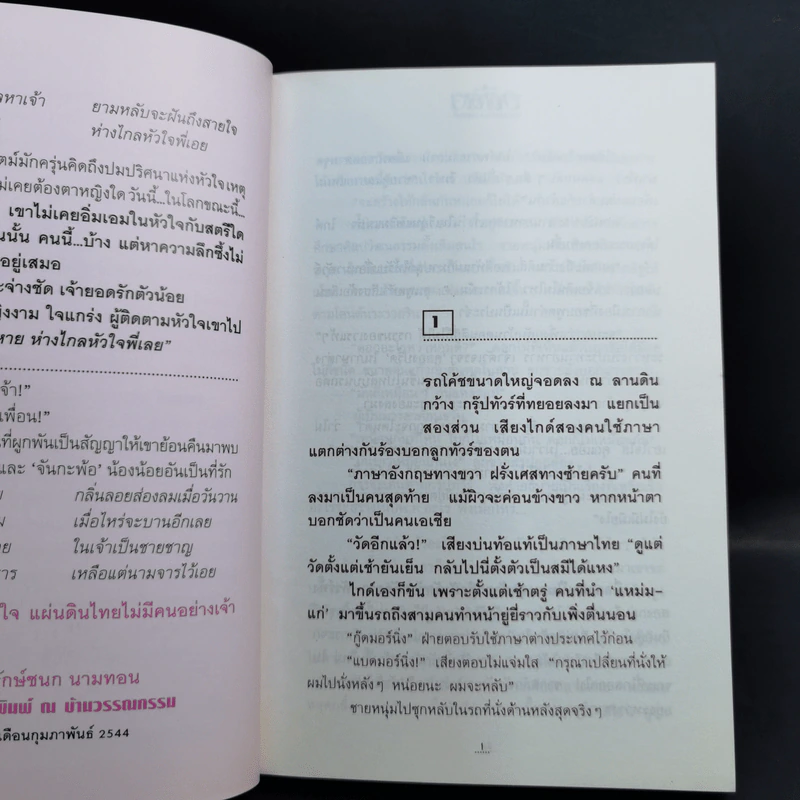 หาเจ้า ยามหลับจะฝันถึงสายใจ
ห่างไกลหัวใจพี่เอย
ตม์มักครุ่นคิดถึงปมปริศนาแห่งหัวใจ เหตุ
ม่เคยต้องตาหญิงใด วันนี้...ในโลกขณะนี้...
เขาไม่เคยอิ่มเอมในหัวใจกับสตรีใด
นนั้น คนนี้...บ้าง แต่หาความลึกซึ้งไม่
อยู่เสมอ
ะจ่างชัด เจ้ายอดรักตัวน้อย
ญิงงาม ใจแกร่ง ผู้ติดตามหัวใจเขาไป
หาย ห่างไกลหัวใจพี่เลย”
จ้า!”
เพื่อน!”
ที่ผูกพันเป็นสัญญาให้เขาย้อนคืนมาพบ
และ ‘จันกะพ้อ’ น้องน้อยอันเป็นที่รัก
กลิ่นลอยส่องลมเมื่อวันวาน
เมื่อไหร่จะบานอีกเลย
ในเจ้าเป็นชายชาญ
าร เหลือแต่นามจารไว้เอย
ใจ แผ่นดินไทยไม่มีคนอย่างเจ้า
รักษ์ชนก นามทอน
พิมพ์ ณ บ้านวรรณกรรม
เดือนกุมภาพันธ์ 2544
1
รถโค้ชขนาดใหญ่จอดลง ณ ลานดิน
กว้าง กรุ๊ปทัวร์ที่ทยอยลงมา แยกเป็น
สองส่วน เสียงไกด์สองคนใช้ภาษา
แตกต่างกันร้องบอกลูกทัวร์ของตน
“ภาษาอังกฤษทางขวา ฝรั่งเศสทางซ้ายครับ” คนที่
ลงมาเป็นคนสุดท้าย แม้ผิวจะค่อนข้างขาว หากหน้าตา
บอกชัดว่าเป็นคนเอเชีย
“วัดอีกแล้ว!” เสียงบ่นท้อแท้เป็นภาษาไทย “ดูแต่
วัดตั้งแต่เช้ายันเย็น กลับไปนี่ตั้งตัวเป็นสมีได้แหง”
ไกด์เองก็ขัน เพราะตั้งแต่เช้าตรู่ คนที่นำ ‘แหม่ม-
แก่’ มาขึ้นรถถึงสามคนทำหน้ายู่ยี่ราวกับเพิ่งตื่นนอน
“กู๊ดมอร์นิ่ง” ฝ่ายตอบรับใช้ภาษาต่างประเทศไว้ก่อน
“แบดมอร์นิ่ง!” เสียงตอบไม่แจ่มใส “กรุณาเปลี่ยนที่นั่งให้
ผมไปนั่งหลังๆ หน่อยนะ ผมจะหลับ”
ชายหนุ่มไปซุกหลับในรถที่นั่งด้านหลังสุดจริงๆ
1